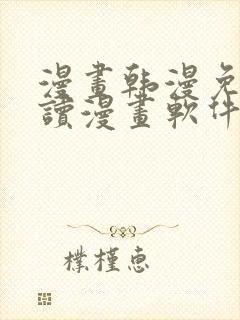 漫畫韩漫免
讀漫畫軟件
樸槿惠